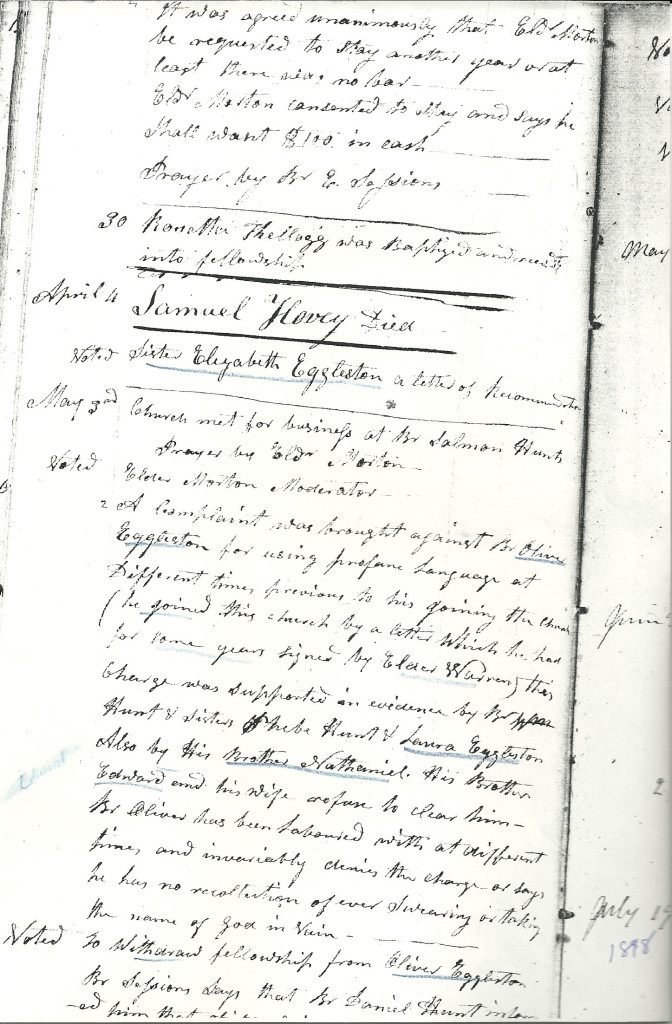 It was agreed unanimously that Eldr Morton
be requested to stay another year or at
least there was no bar
Eldr Morton consented to stay and says he
shall want $100 in cash
Prayer by Br E. Sessions
30 was Baptized and
into fellowship
April 4 Samuel Hovey Died
Voted Sister Elizabeth Eggleston a letter of
May 3rd Church met for business at Br Salmon Hunts
Prayer by Eldr Morton
Voted Elder Morton Moderator
2 A Complaint was brought against Br Oliver
Eggleston for using profane language at
Different times previous to his joining the church
(he joined this church by a letter which he had
for some years signed by Elder Warren) this
charge was supported in evidence by Br
Hunt & Sisters Phebe Hunt & Laura Eggleston
Also by His Brother Nathaniel. His Brother
Edward and his wife refuse to clear him
Br Oliver has been laboured with at different
times and invariably denies the charge or says
he has no recollection of ever Swearing or taking
the name of God in Vain
Voted to withdraw fellowship from Oliver Eggleston
Br Sessions Says that Br Daniel Hunt
ed him that
Edward
May
June
2
July 19